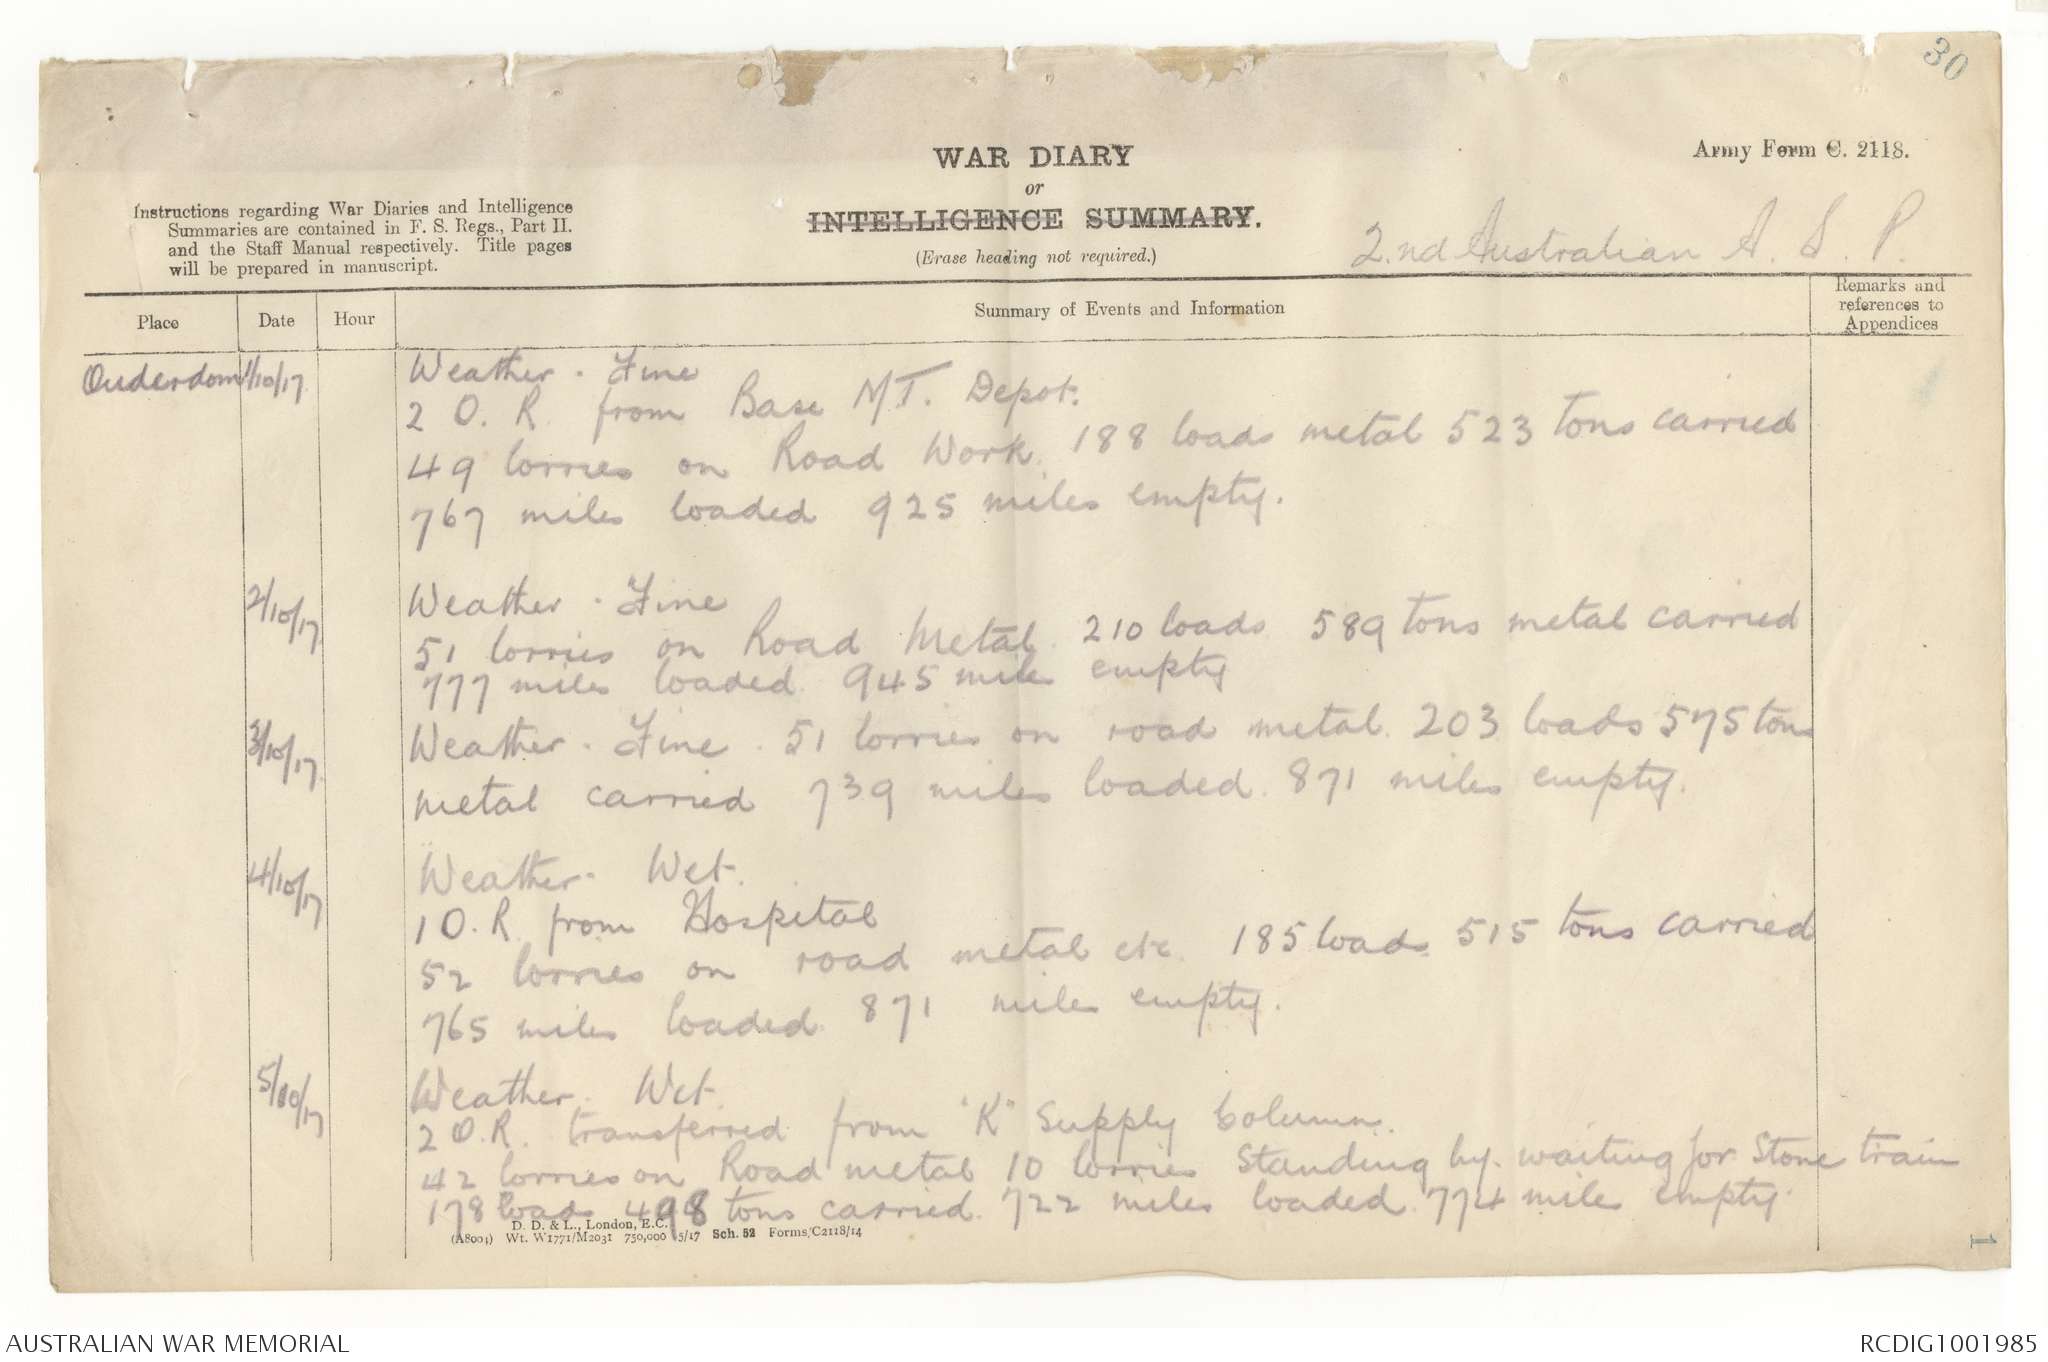 30
WAR DIARY
or
INTELLIGENCE SUMMARY.
(Erase heading not required.)
Army Form C. 2118.
Instructions regarding War Diaries and Intelligence
Summaries are contained in F. S. Regs., Part II.
and the Staff Manual respectively. Title pages
will be prepared in manuscript.
2.nd Australian A. S. P.
Place Date Hour Summary of Events and Information Remarks and references to Appendices
Ouderdom 1/10/17 Weather - Fine
2 O. R. from Base M.T. Depot.
49 lorries on Road Work. 188 loads metal 523 tons carried
767 miles loaded 925 miles empty.
2/10/17 Weather - Fine
51 lorries on Road Metal. 210 loads 589 tons metal carried
777 miles loaded 945 miles empty
3/10/17 Weather - Fine. 51 lorries on road metal. 203 loads 575 tons
metal carried 739 miles loaded. 871 miles empty.
4/10/17 Weather - Wet.
1 O. R. from Hospital
52 lorries on road metal etc. 185 loads. 515 tons carried
765 miles loaded 871 miles empty.
5/10/17 Weather - Wet.
2 O.R. transferred from "K" Supply Column.
42 lorries on Road metal 10 lorries Standing by waiting for Stone train
178 loads 498 tons carried. 722 miles loaded. 774 miles empty.
D. D. & L., London, E.C.
(A8004) Wt. W1771/M2031 750,000 5/17 Sch. 52 Forms/C2118/14
1
AUSTRALIAN WAR MEMORIAL
RCDIG1001985